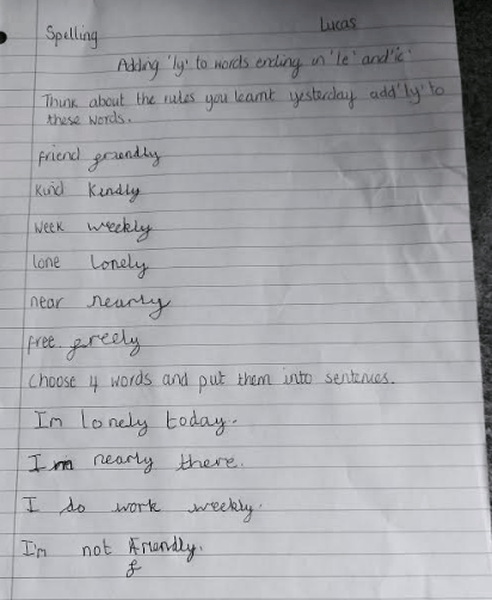 Spelling Lucas
Adding 'ly' to words ending in 'le' and 'ic'
Think about the rules you learnt yesterday add 'ly' to
these words.
friend friendly
kind kindly
week weekly
lone lonely
near nearly
free freely
Choose 4 words and put them into sentences.
Im lonely today.
Im nearly there.
I do work weekly.
I'm not friendly.
f